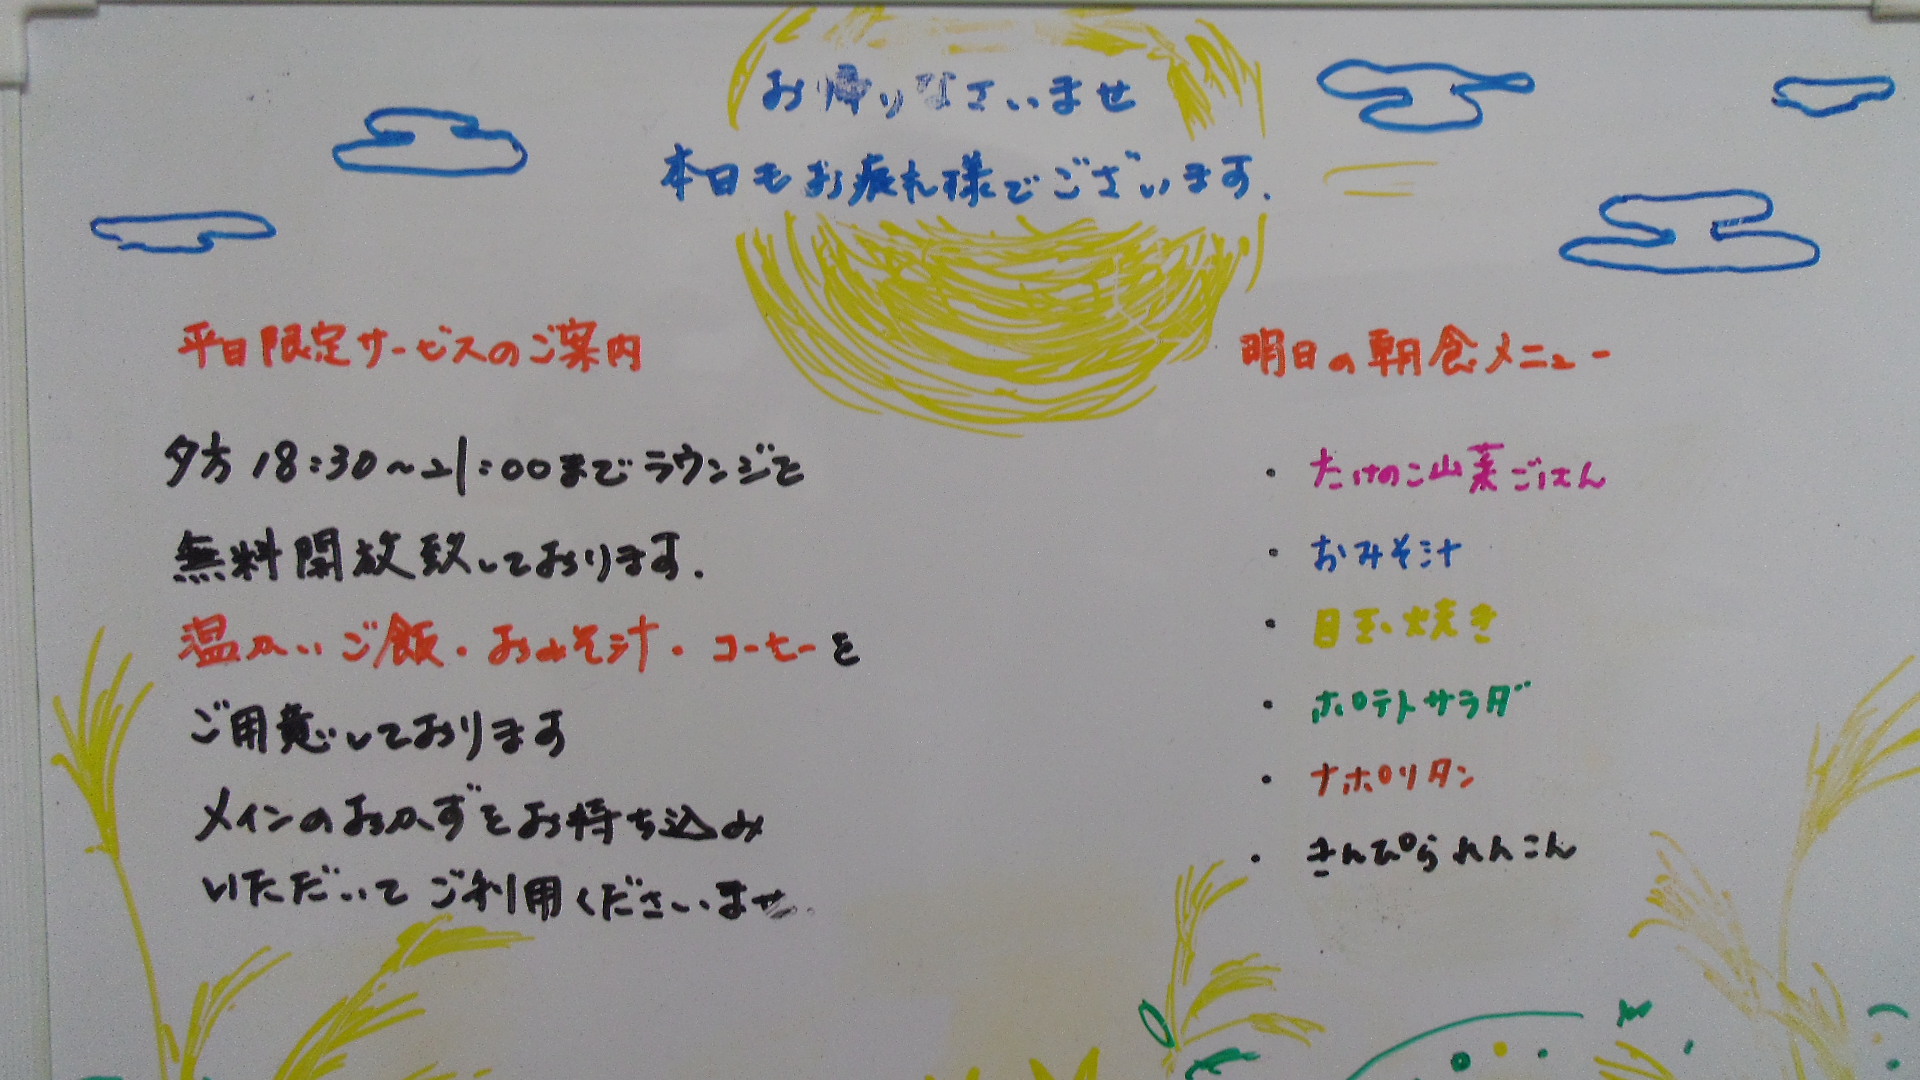 お帰りなさいませ
本日もお疲れ様でございます.
平日限定サービスのご案内
夕方 18:30〜21:00までラウンジを
無料開放致しております.
温かいご飯・おみそ汁・コーヒーを
ご用意しております
メインのおかずをお持ち込み
いただいてご利用くださいませ.
明日の朝食メニュー
・たけのこ山菜ごはん
・おみそ汁
・目玉焼き
・ポテトサラダ
・ナポリタン
・きんぴられんこん